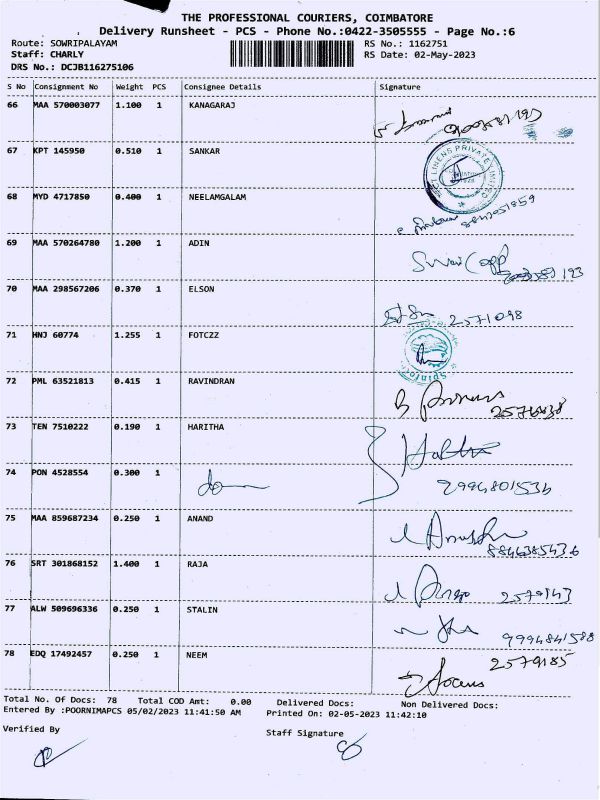 THE PROFESSIONAL COURIERS, COIMBATORE
Delivery Runsheet - PCS - Phone No.:0422-3505555 - Page No.:6
Route: SOWRIPALAYAM RS No.: 1162751
Staff: CHARLY RS Date: 02-May-2023
DRS No.: DCJB116275106
S No Consignment No Weight PCS Consignee Details Signature
66 MAA 570003077 1.100 1 KANAGARAJ
67 KPT 145950 0.510 1 SANKAR
LINENS PRIVATE LIMITED
68 MYD 4717850 0.400 1 NEELAMGALAM
69 MAA 570264780 1.200 1 ADIN
70 MAA 298567206 0.370 1 ELSON
2571098
71 HNJ 60774 1.255 1 FOTCZZ
72 PML 63521813 0.415 1 RAVINDRAN
73 TEN 7510222 0.190 1 HARITHA
74 PON 4528554 0.300 1
9994801536
75 MAA 859687234 0.250 1 ANAND
8846385436
76 SRT 301868152 1.400 1 RAJA
77 ALW 509696336 0.250 1 STALIN
9994841588
78 EDQ 17492457 0.250 1 NEEM 2579185
Total No. Of Docs: 78 Total COD Amt: 0.00 Delivered Docs: Non Delivered Docs:
Entered By :POORNIMAPCS 05/02/2023 11:41:50 AM Printed On: 02-05-2023 11:42:10
Verified By Staff Signature